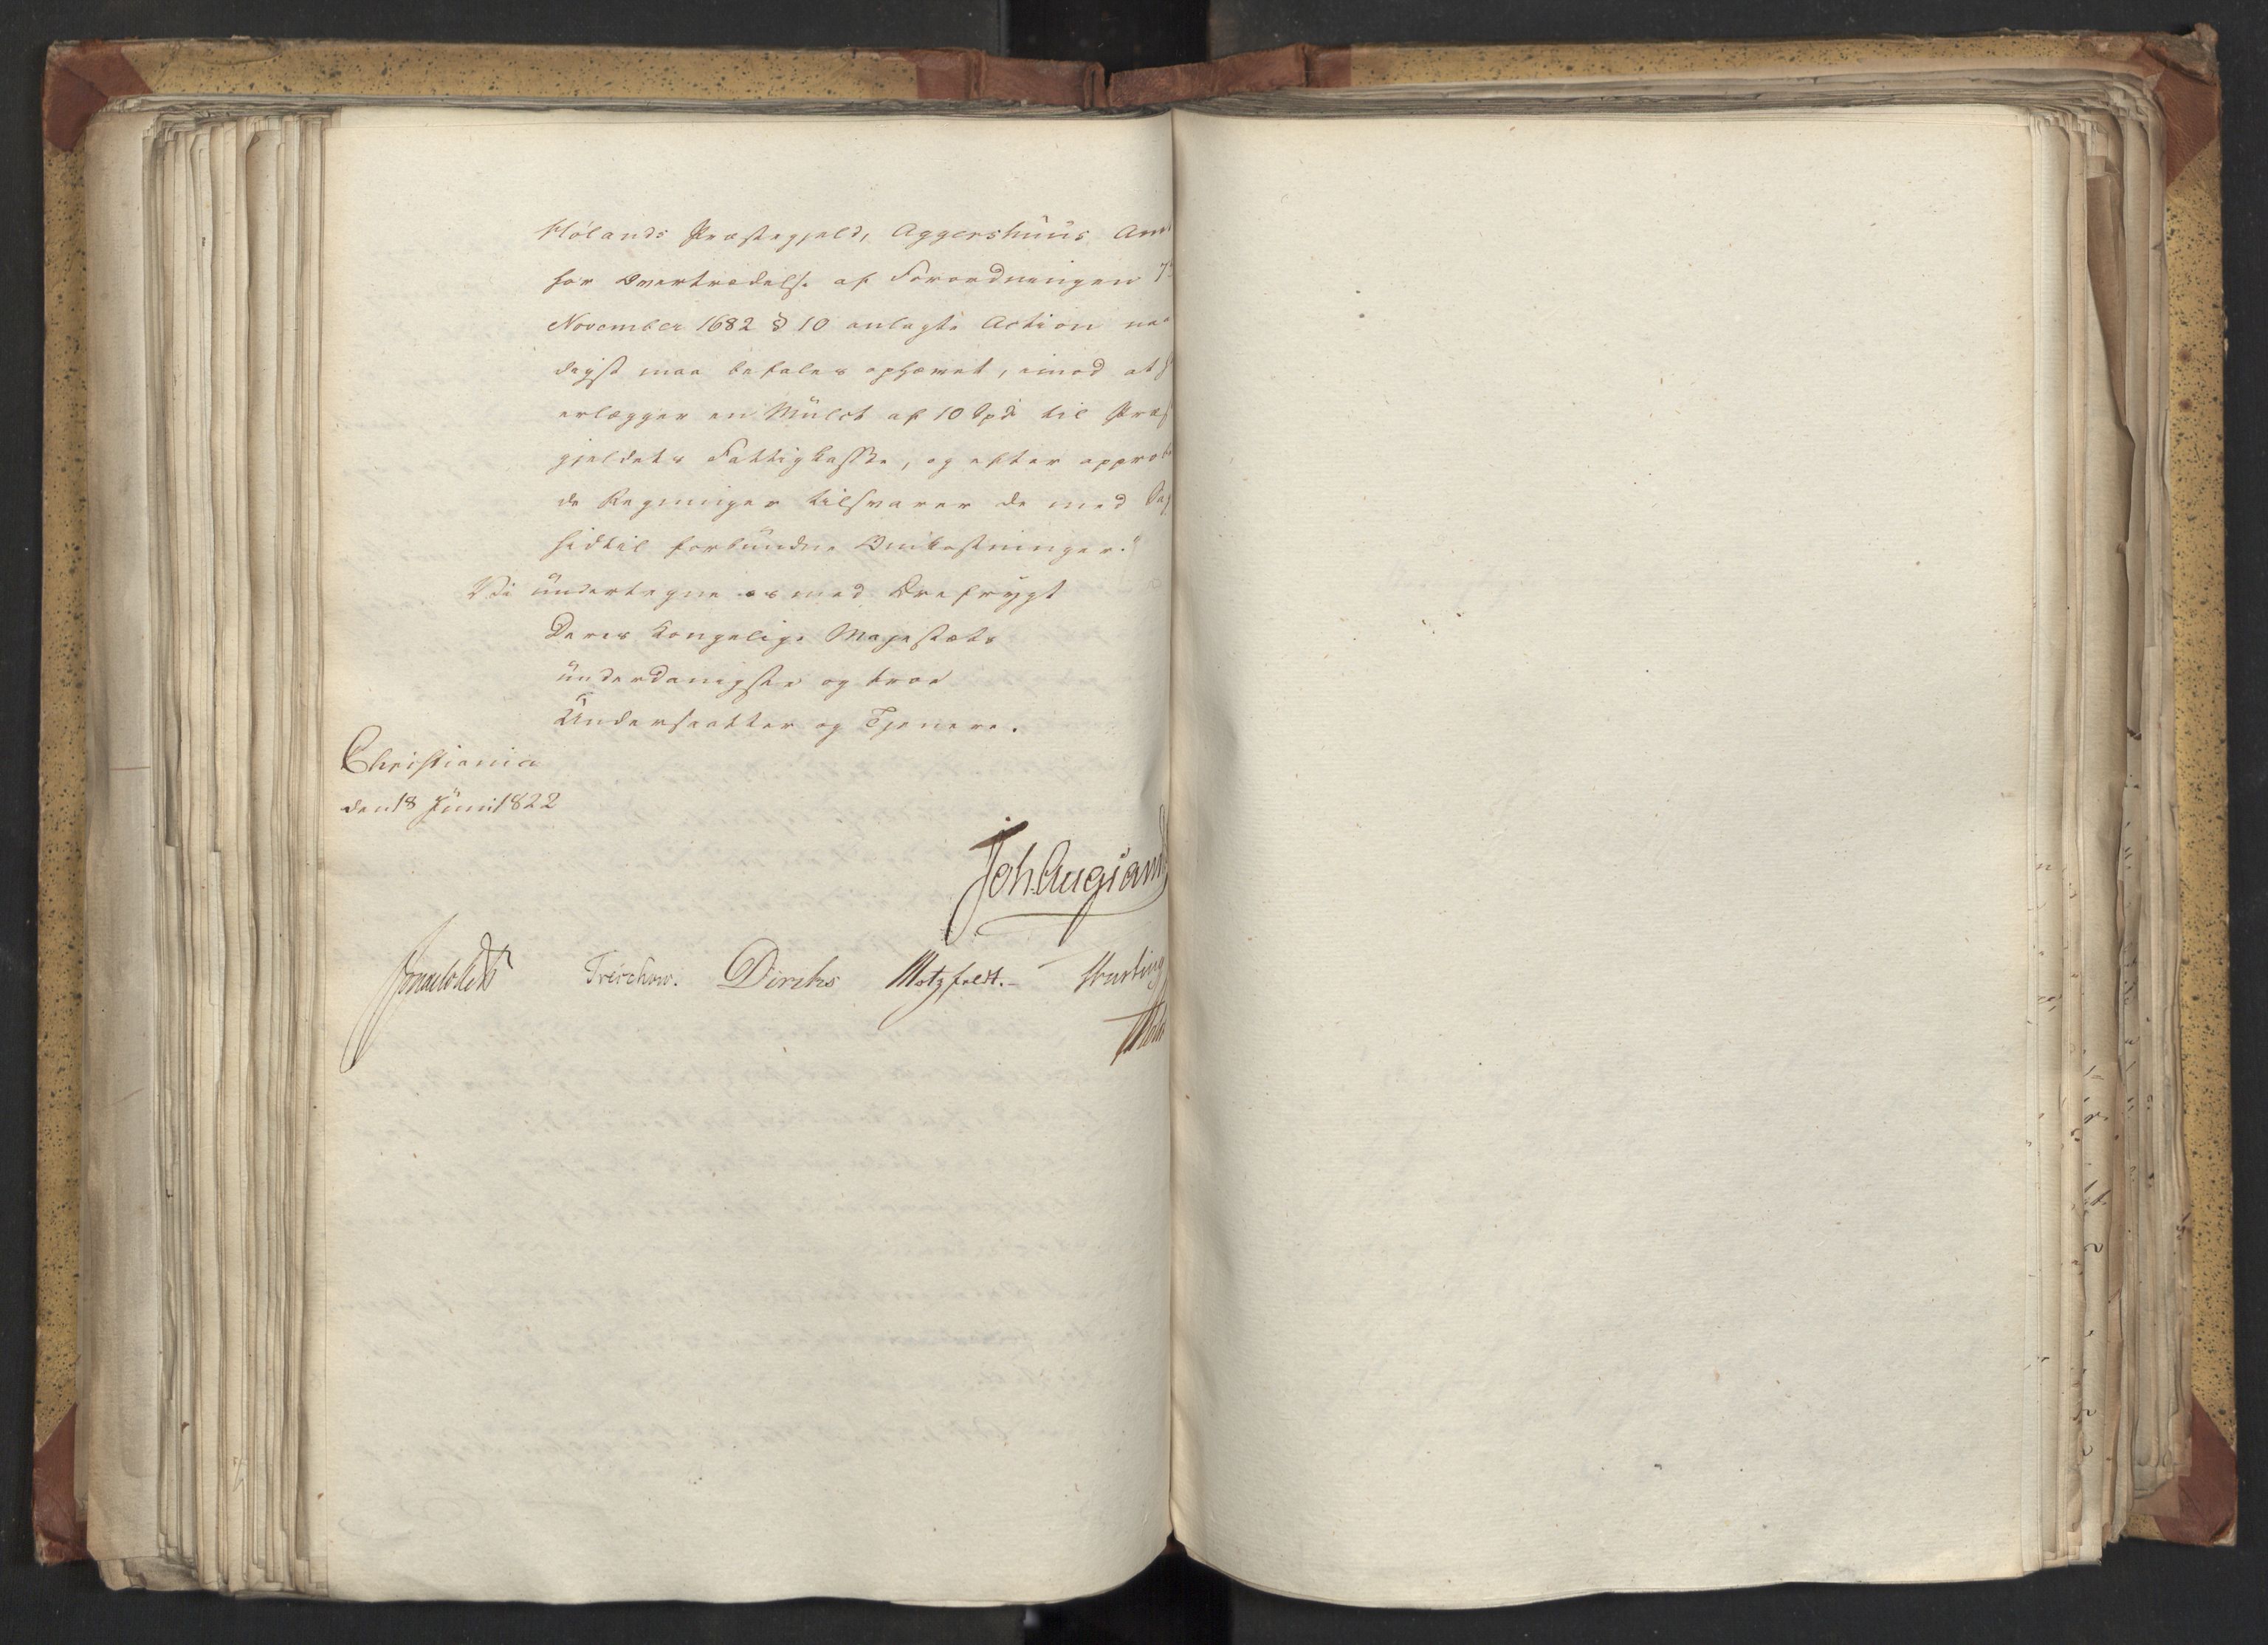 Hølands Præstegjeld, Aggershuus Am
for Overtrædelse af Forordningen 7
November 1682 § 10 anlagte Action naa
digst maa befales ophævet, imod at h
erlægger en Mulct af 10 Spd til Præs
gjeldets Fattigkasse, og efter approbe
de Regninger tilsvarer de med Sag
hidtil forbundne Omkostninger."
Vi undertegne os med Ærefrygt
Deres Kongelige Majestæts
underdanigste og troe
Undersaatter og Tjenere.
Christiania
den 18 Juni 1822
Joh. Aug. Sand
Treschow. Diriks Motzfeldt.